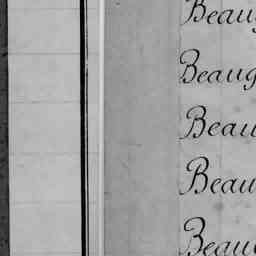 Beaug
Beaug
Beau
Beau
Beau